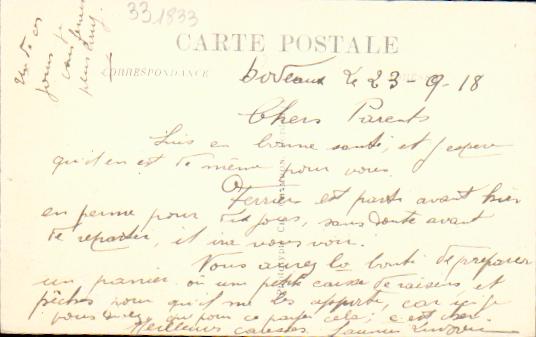 33 1833
un de ces
jours je
vous
plus long
CARTE POSTALE
CORRESPONDANCE
Bordeaux le 23-9-18
Chers Parents
Suis en bonne santé, et j'espère
qu'il en est de même pour vous.
Ferrier est parti avant hier
en perme pour dix jours, sans doute avant
de repartir, il ira vous voir.
Vous aurez la bonté de préparer
un panier ou une petite caisse de raisins, et
pêches pour qu'il me les apporte, car ici
vous savez, pour ce cela; c'est cher.
Meilleures caresses.